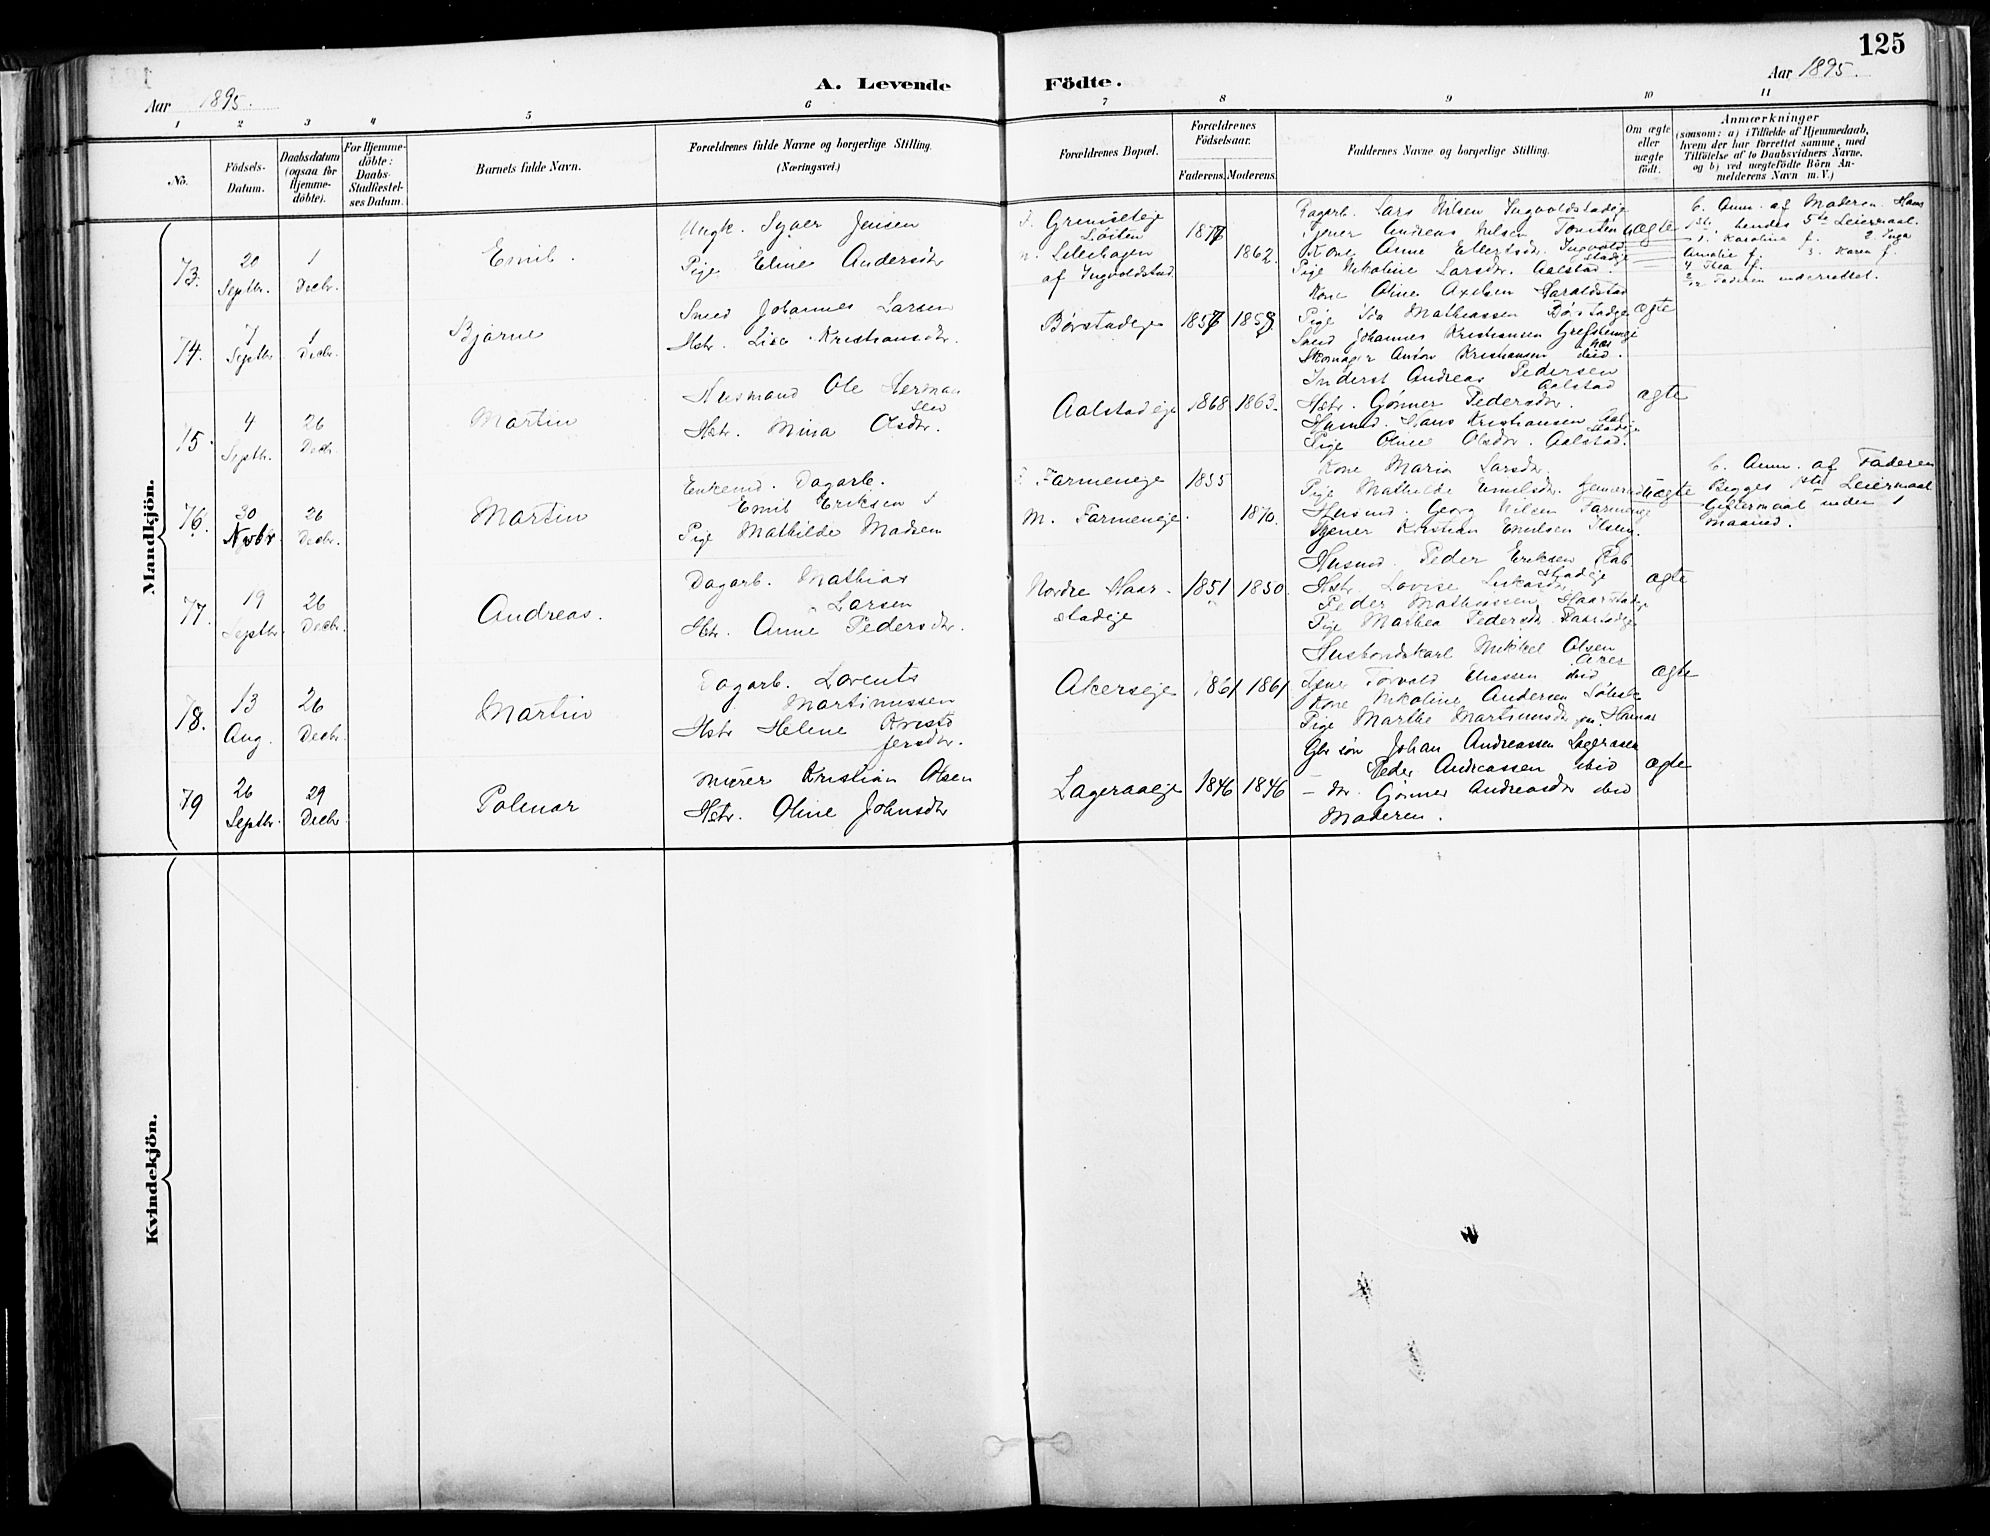 125
Aar 1895.
A. Levende
Födte.
Aar 1895.
1 2 3 4 5 6 7 8 9 10 11
No.
Födsels-Datum.
Daabsdatum (ogsaa for Hjemme-döbte).
For Hjemme-döbte: Daabs-Stadfæstel-ses Datum.
Barnets fulde Navn.
Forældrenes fulde Navne og borgerlige Stilling. (Næringsvei.)
Forældrenes Bopæl.
Forældrenes Födselsaar.
Faderens. Moderens.
Faddernes Navne og borgerlige Stilling.
Om ægte eller uægte födt.
Anmærkninger
(saasom: a) i Tilfælde af Hjemmedaab,
hvem der har forrettet samme, med
Tilföielse af to Daabsvidners Navne.
og b) ved uægtefödte Börn An-
melderens Navn m. V.)
Mandkjön.
73.
20 Septbr.
1 Decbr.
Emil.
Ungk. Jensen
Pige Eline Andersdtr
Løiten
af Ingvoldstad
1862.
Lars Nilsen Ingvoldstadeje
Tjener Andreas Nilsen
Kone Anne
Pige Nikoline Larsdtr. Aalstad.
uægte
Anm. af Moderen. Hans
1ste, hendes 5te Leiermaal.
1. Karoline f. 2. Inga
Amalie f. 3. Karen f.
4 Thea f.
Faderen underrettet.
74.
7 Septbr
1 Decbr.
Bjarne
Smed Johannes Larsen
Hstr. Lise Kristiansdtr.
Børstadeje
1857
Kone Oline Axelsen Haraldstad
Pige Ida Mathiassen Børstadeje
Smed Johannes Kristiansen
Skomager Anton Kristiansen ibid.
ægte
75.
4 Septbr.
26 Decbr
Martin
Husmand Ole Herman
sen
Hstr. Mina Olsdtr.
Aalstadeje
1868 1863.
Inderst Andreas Pedersen
Aalstad
Hstr. Gønner Pedersdtr.
Husmd. Hans Kristiansen Aal
stadeje
Pige Oline Olsdtr. Aalstad.
ægte
76.
30 Novbr.
26 Decbr.
Martin
Enkemd. Dagarb.
Emil Eriksen
Pige Mathilde Madsen
F. Farmeneje
M. Farmeneje.
1855
1870.
Kone Maria Larsdtr.
Pige Mathilde Emilsdtr.
Husmd. Georg Nilsen Farmeneje
Tjener Kristian Emilsen
uægte
Anm. af Faderen
Begges 1ste Leiermaal
Giftermaal inden 1
Maaned.
77.
19 Septbr.
26 Decbr.
Andreas.
Dagarb. Mathias
Larsen
Hstr. Anne Pedersdtr.
Nordre Haar-
stadeje
1851 1850.
Husmd. Peder Eriksen
Hstr Lovise
Peder Mathiassen Haarstadeje
Pige Mathea Pedersdtr Haarstadeje
ægte
78.
13 Aug.
26 Decbr.
Martin
Dagarb. Lorents
Martinussen
Hstr Helene Kristo
fersdtr.
Akerseje
1861 1861
Husbondskarl Mikkel Olsen
Aker
Tjener Torvald Eliassen ibid
Kone Nikoline Andersen
Pige Marthe Martinusdtr Hamar
ægte
79
26 Septbr.
29 Decbr.
Palmar
Murer Kristian Olsen
Hstr. Oline Johnsdtr
Lageraaeje
1846 1846
Gbr søn Johan Andreassen Lageraaen
— Peder Andreassen ibid
— dtr. Gønner Andreasdtr ibid
Moderen.
ægte
Kvindekjön.